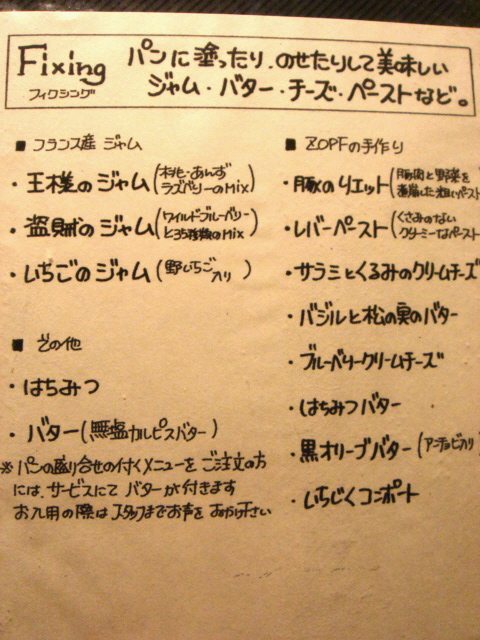 Fixing
フィクシング
パンに塗ったり、のせたりして美味しい
ジャム・バター・チーズ・ペーストなど。
■ フランス産 ジャム
・王様のジャム(桃・あんず
ラズベリーのMix)
・盗賊のジャム(ワイルドブルーベリー
と35種類のMix)
・いちごのジャム(野いちご
入り)
■ その他
・はちみつ
・バター(無塩カルピスバター)
※パンの盛り合せの付くメニューをご注文の方
には、サービスにてバターが付きます
お入用の際はスタッフまでお声をおかけ下さい
■ ZOPFの手作り
・豚のリエット(豚肉と野菜を
煮崩した粗いペースト
・レバーペースト(くさみのない
クリーミーなペースト
・サラミとくるみのクリームチーズ
・バジルと松の実のバター
・ブルーベリークリームチーズ
・はちみつバター
・黒オリーブバター(アンチョビ入り
・いちじくコンポート